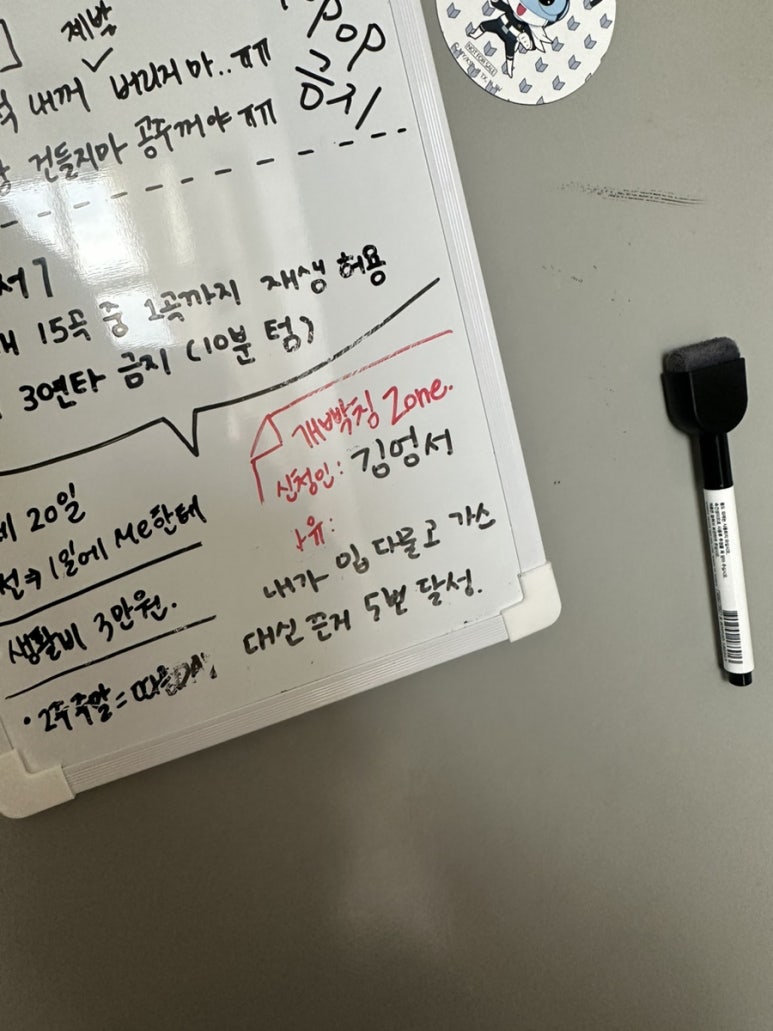 제발
내꺼 버리지마..ㅠㅠ
건들지마 공주꺼야 ㅠㅠ
POP
금지
15곡 중 1곡까지 재생 허용
3연타 금지 (10분 텀)
20일
1일에 Me한테
생활비 3만원.
• 2주 주말 =
개빡침 Zone.
신청인: 김영서
사유:
내가 입 다물고 가스
대신 끈거 5번 달성.
NOT FOR SALE